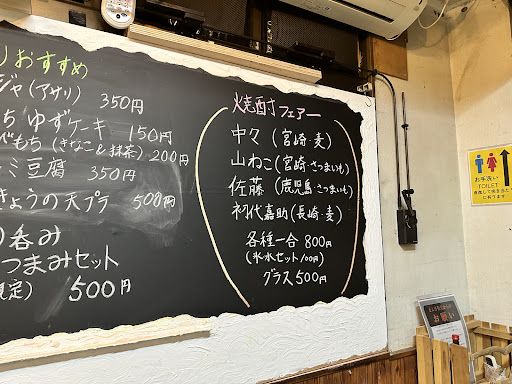 りおすすめ
ジャ(アサリ) 350円
ち ゆずケーキ 150円
べもち(きなこ&抹茶)200円
ミ豆腐 350円
きょうの天プラ 500円
呑み
つまみセット
定) 500円
焼酎フェアー
中々(宮崎・麦)
山ねこ(宮崎・さつまいも)
佐藤(鹿児島・さつまいも)
初代嘉助(長崎・麦)
各種一合 800円
(氷水セット100円)
グラス500円
お手洗い
TOILET
お願い